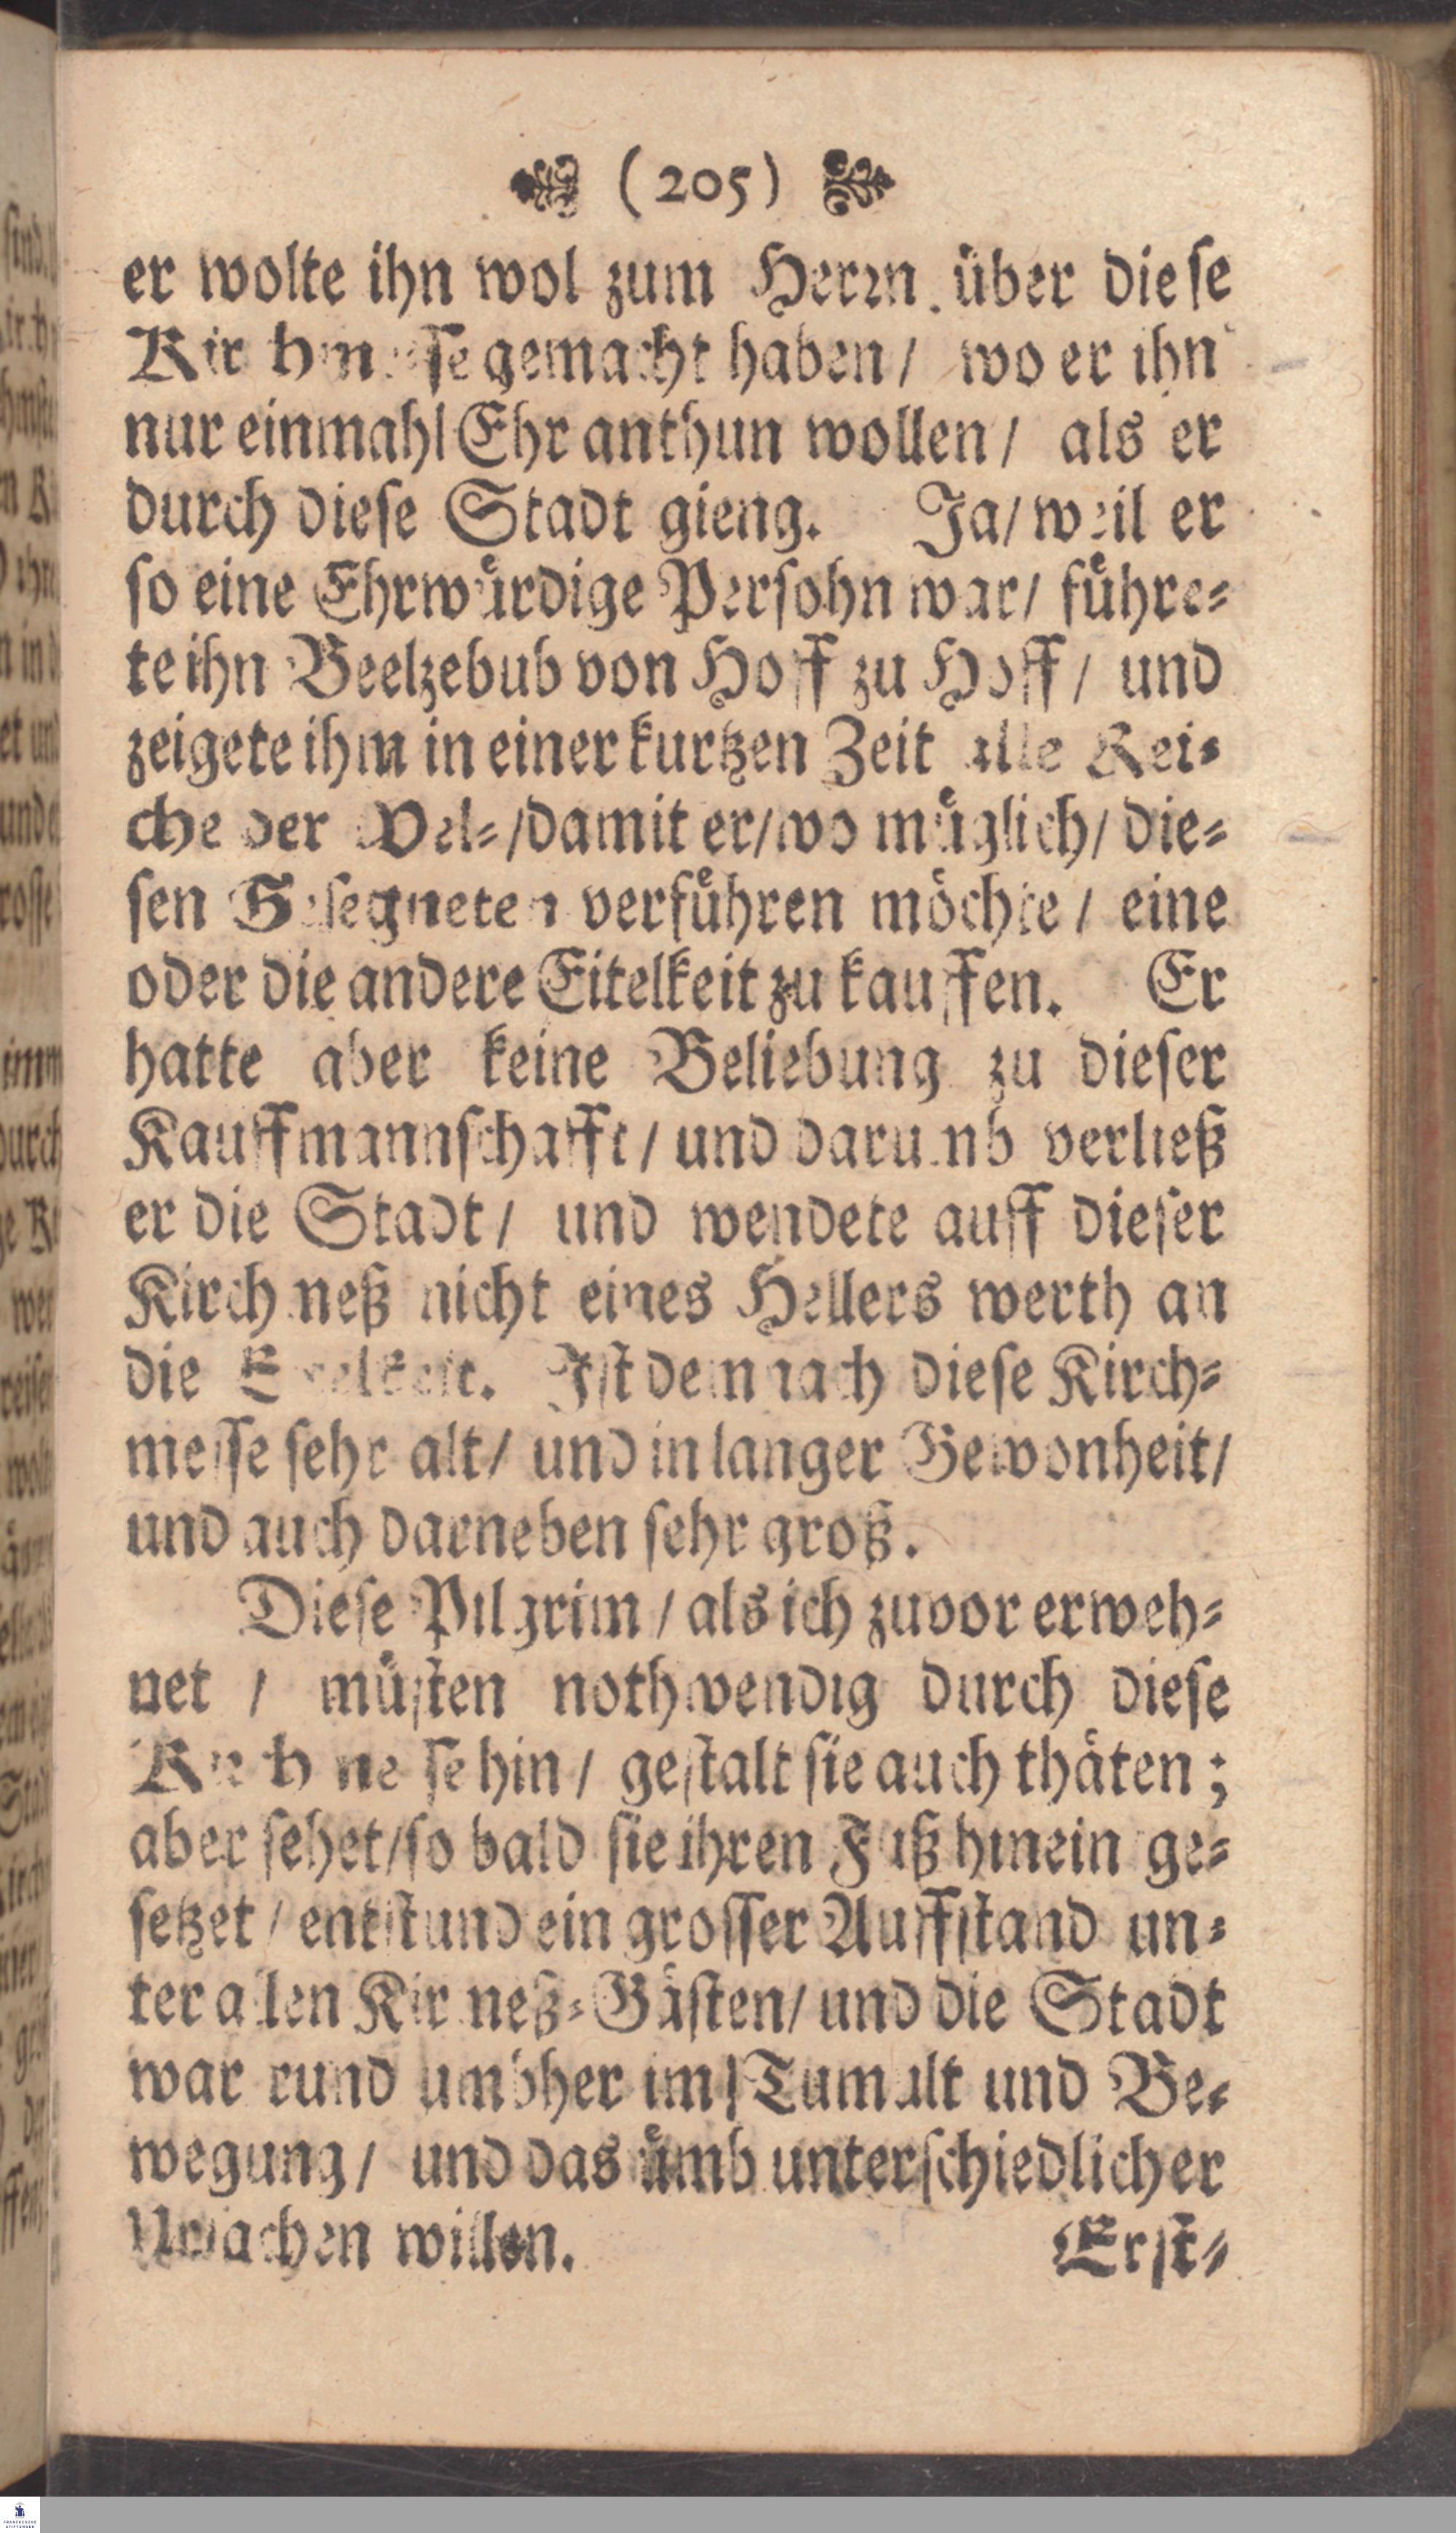 (205)
er wolte ihn wol zum Herrn über diese
Kirchmesse gemacht haben / wo er ihn
nur einmahl Ehr anthun wollen / als er
durch diese Stadt gieng. Ja / weil er
so eine Ehrwürdige Persohn war / führe-
te ihn Beelzebub von Hoff zu Hoff / und
zeigete ihm in einer kurtzen Zeit alle Rei-
che der Wel- / damit er / wo müglich / die-
sen Gesegneten verführen möchte / eine
oder die andere Eitelkeit zu kauffen. Er
hatte aber keine Beliebung zu dieser
Kauffmannschafft / und darumb verließ
er die Stadt / und wendete auff dieser
Kirchmeß nicht eines Hellers werth an
die Eitelkeit. Ist demnach diese Kirch-
messe sehr alt / und in langer Gewonheit /
und auch darneben sehr groß.
Diese Pilgrim / als ich zuvor erweh-
net / müsten nothwendig durch diese
Kirchmesse hin / gestalt sie auch thäten ;
aber sehet / so bald sie ihren Fuß hinein ge-
setzet / entstund ein grosser Auffstand un-
ter allen Kirmeß-Gästen / und die Stadt
war rund umbher im Tumult und Be-
wegung / und das ümb unterschiedlicher
Ursachen willen.
Erst-
FRANCKESCHE
STIFTUNGEN